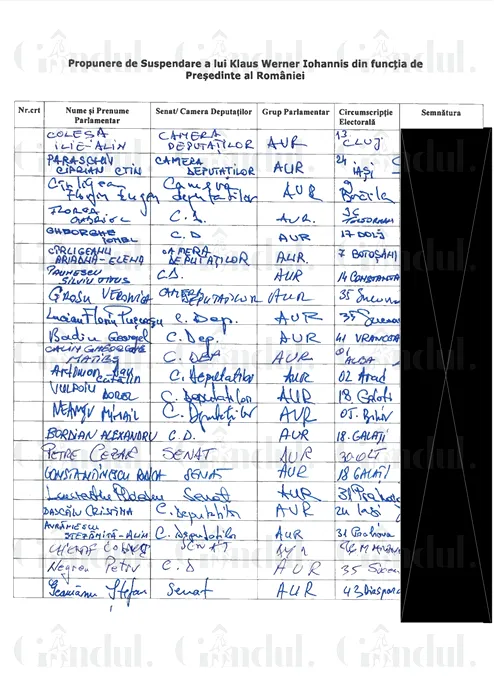 Gândul. Gândul. Gândul.
Propunere de Suspendare a lui Klaus Werner Iohannis din funcția de
Președinte al României
Nr.crt Nume și Prenume Parlamentar Senat/ Camera Deputaților Grup Parlamentar Circumscripție Electorală Semnătura
COLEȘA ILIE-ALIN CAMERA DEPUTAȚILOR AUR 13 CLUJ
PARASCHIV CIPRIAN CAMERA DEPUTAȚILOR AUR 24 IAȘI
Camera deputaților AUR Brăila
FLOREA GABRIEL C.D. AUR.
GHEORGHE IONEL C.D AUR 17 DOLJ
CÎRLIGEANU ARIADNA-ELENA CAMERA DEPUTAȚILOR AUR. 7 BOTOȘANI
PĂUNESCU SILVIU TITUS C.D. AUR 14 CONSTANTA
Grosu Veronica CAMERA DEPUTAȚILOR AUR 35
Lucian Florin C. Dep. AUR 35
Badiu Georgel C. Dep. AUR 41 VRANCEA
CĂLIN GHEORGHE MATIEȘ C. DEP AUR 01 ALBA
C. Deputatilor AUR 02 Arad
VULPOIU DOREL C. Deputatilor AUR 18 Galati
NEAMȚU MIHAIL C. Deputaților AUR 05. Bihor
BORDIAN ALEXANDRU C.D. AUR 18. GALAȚI
PETRE CEZAR SENAT AUR 30 OLT
CONSTANTINESCU SENAT AUR 18 GALATI
Senat AUR 31 Prahova
DASCĂLU CRISTINA C. Deputatilor AUR 24 Iasi
AVRĂMESCU C. Deputatilor AUR 31 Prahova
SENAT
Negrea Petru C.D AUR 35
Ștefan Senat AUR 43 Diaspora
Gândul. Gândul. Gândul.